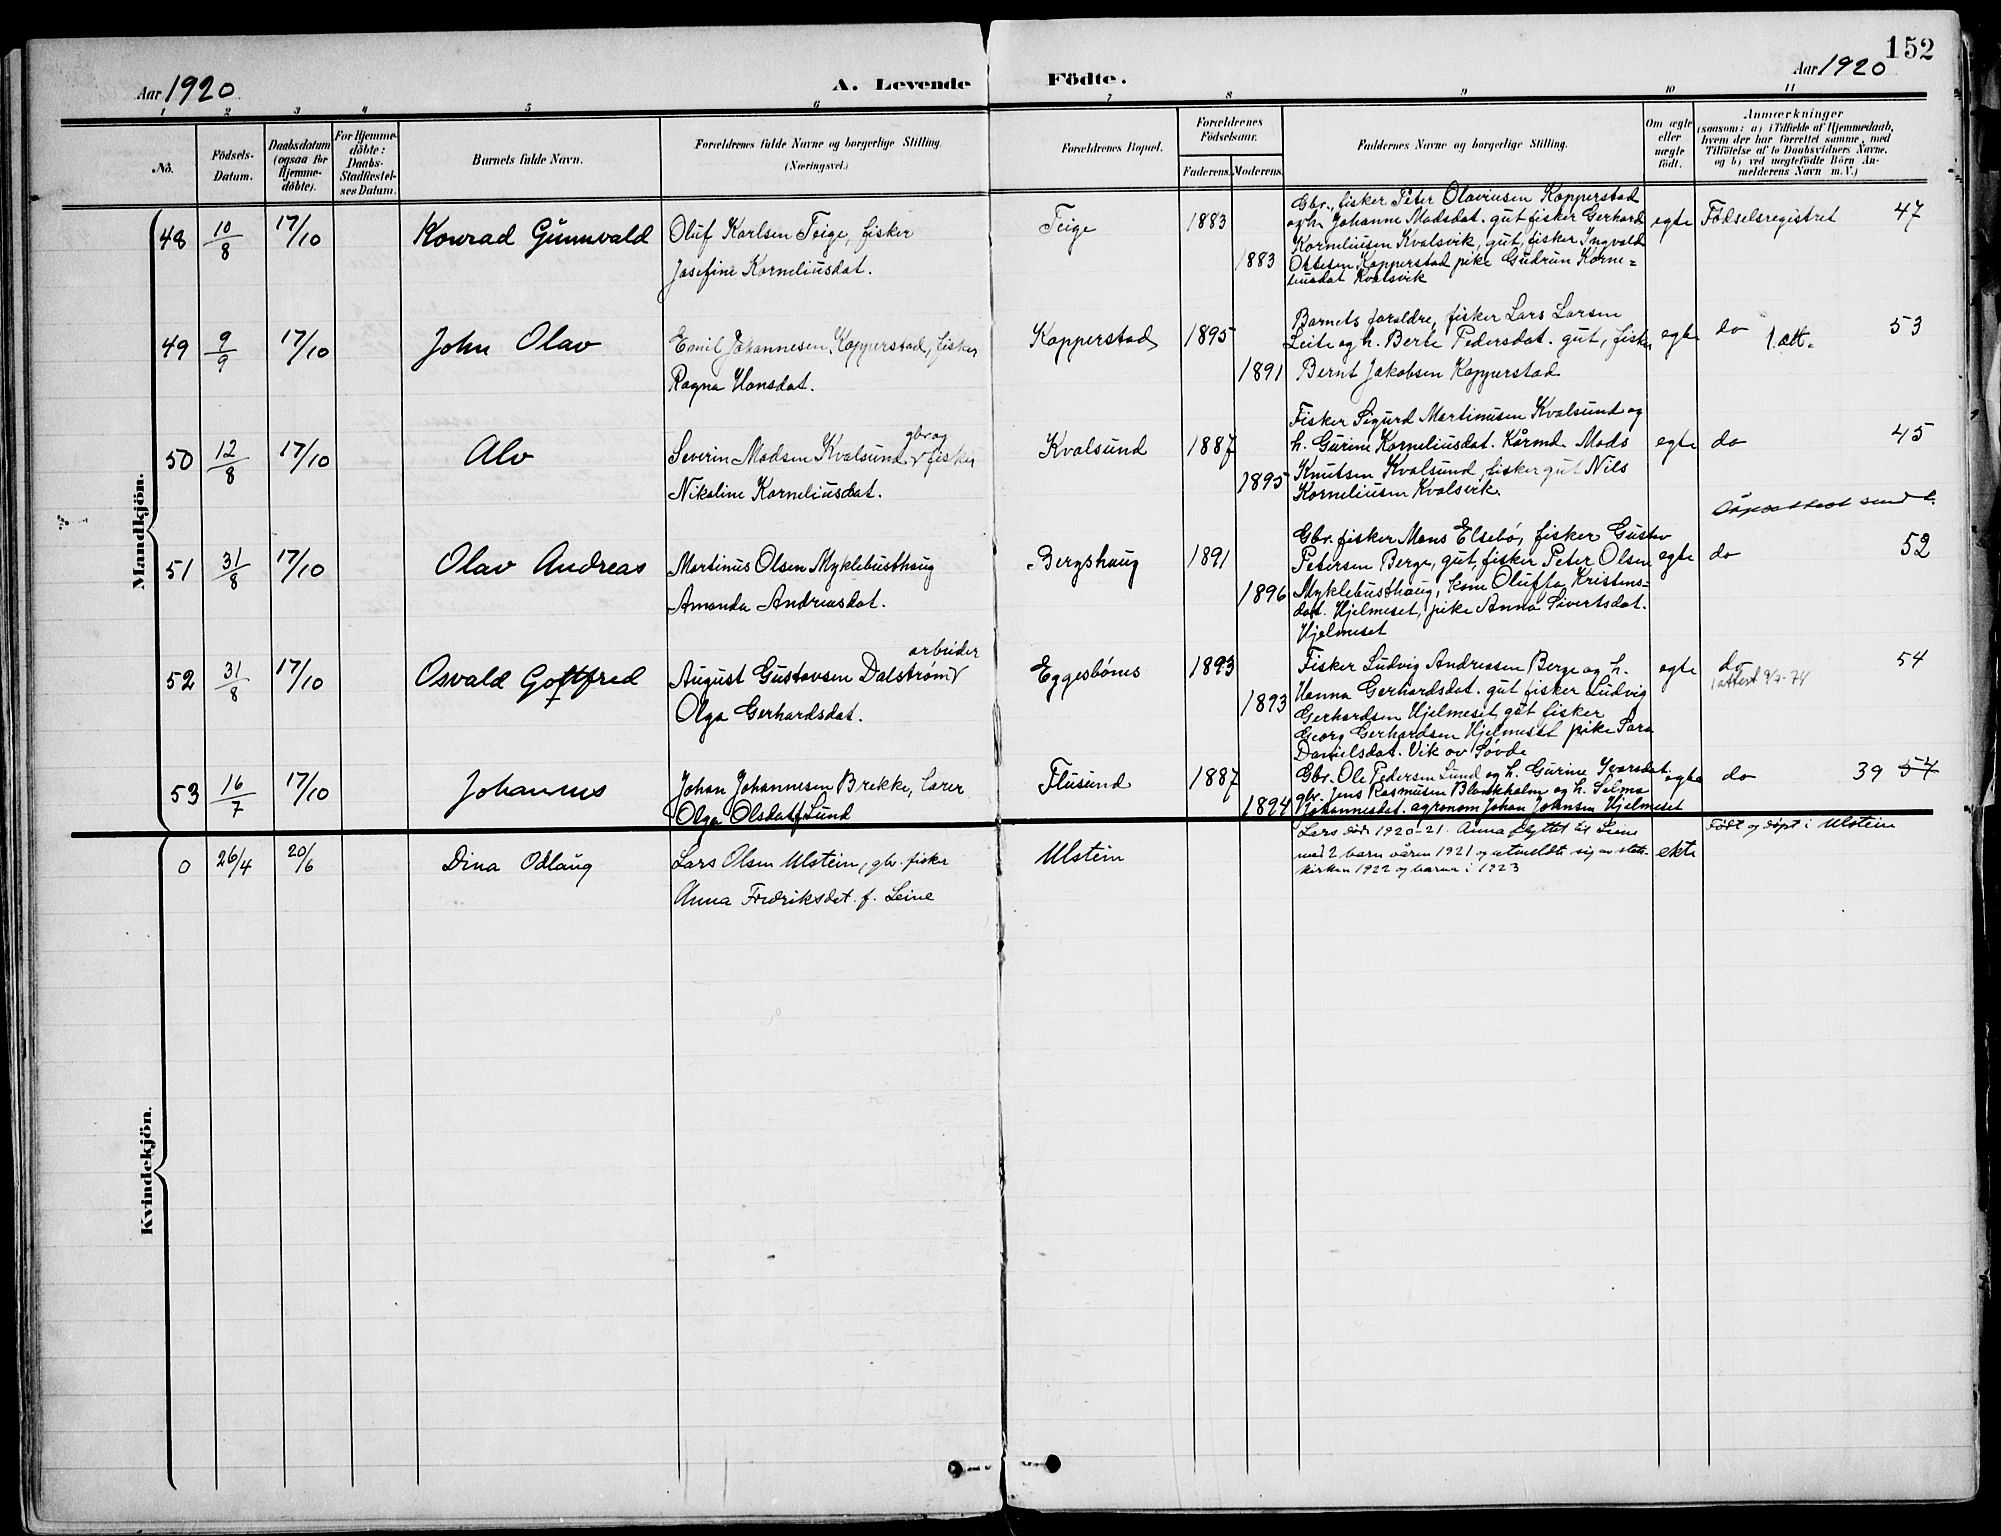 152
Aar 1920
A. Levende Födte.
Aar 1920
1 2 3 4 5 6 7 8 9 10 11
No.
Födsels-
Datum.
Daabsdatum
(ogsaa for
Hjemme-
döbte).
For Hjemme-
döbte:
Daabs-
Stadfæstel-
ses Datum.
Barnets fulde Navn.
Forældrenes fulde Navne og borgerlige Stilling.
(Næringsvei.)
Forældrenes Bopæl.
Forældrenes
Födselsaar.
Faderens. Moderens.
Faddernes Navne og borgerlige Stilling.
Om ægte
eller
uægte
födt.
Anmærkninger
(saasom: a) i Tilfælde af Hjemmedaab,
hvem der har forrettet samme, med
Tilföielse af to Daabsvidners Navne,
og b) ved uægtefödte Börn An-
melderens Navn m. V.)
Mandkjön.
48 10/8 17/10 Konrad Gunnvald
Oluf Karlsen Teige, fisker
Josefine Korneliusdat.
Teige 1883
1883
Gbr., fisker Peter Olaviusen Kopperstad
og h. Johanne Madsdat. gut fisker Gerhard
Korneliusen Kvalsvik, gut, fisker Ingvald
Ottesen Kopperstad pike Gudrun Korne=
liusdat Kvalsvik
egte Fødselsregistret 47
49 9/9 17/10 John Olav
Emil Johannesen Kopperstad, fisker
Ragna Hansdat.
Kopperstad 1895
1891
Barnets foreldre, fisker Lars Larsen
Leite og h. Berte Pedersdat. gut, fisker
Bernt Jakobsen Kopperstad
egte do 1. att. 53
50 12/8 17/10 Alv
gbr og
Severin Madsen Kvalsund fisker
Nikoline Korneliusdat.
Kvalsund 1887
1895
Fisker Sigurd Martinusen Kvalsund og
h. Gurine Korneliusdat. Kårmd. Mads
Knutsen Kvalsund, fisker gut Nils
Korneliusen Kvalsvik.
egte do 45
Dåpsattest sendt.
51 31/8 17/10 Olav Andreas
Martinus Olsen Myklebusthaug
Amanda Andreasdat.
Bergshaug 1891
1896
Gbr. fisker Mons Elsebø, fisker Gustav
Petersen Berge, gut, fisker Peter Olsen
Myklebusthaug, kone Oluffa Kristens=
dat. Hjelmeset, pike Anna Sivertsdat.
Hjelmeset
egte do 52
52 31/8 17/10 Osvald Gottfred
arbeider
August Gustavsen Dalstrøm
Olga Gerhardsdat.
Eggesbønes 1893
1893
Fisker Ludvig Andreasen Berge og h.
Hanna Gerhardsdat. gut fisker Ludvig
Gerhardsen Hjelmeset gut fisker
Georg Gerhardsen Hjelmeset pike Sara
Danielsdat. Vik av Søvde
egte do 54
1 attest 9/7-74
53 16/7 17/10 Johannes
Johan Johannesen Brekke, lærer
Olga Olsdat f. Lund
Flusund 1887
1894
Gbr. Ole Pedersen Lund og h. Gurine Ivarsdat.
gbr. Jens Rasmusen Blankholm og h. Selma
Johannesdat. agronom Johan Johnsen Hjelmeset
egte do 39 57
Kvindekjön.
0 26/4 20/6 Dina Odlaug
Lars Olsen Ulstein, gbr. fisker
Anna Fredriksdat. f. Leine
Ulstein
Lars døde 1920-21. Anna flyttet til Leine
med 2 barn våren 1921 og utmeldte sig av stats-
kirken 1922 og barna i 1923
ekte
Født og døpt i Ulstein